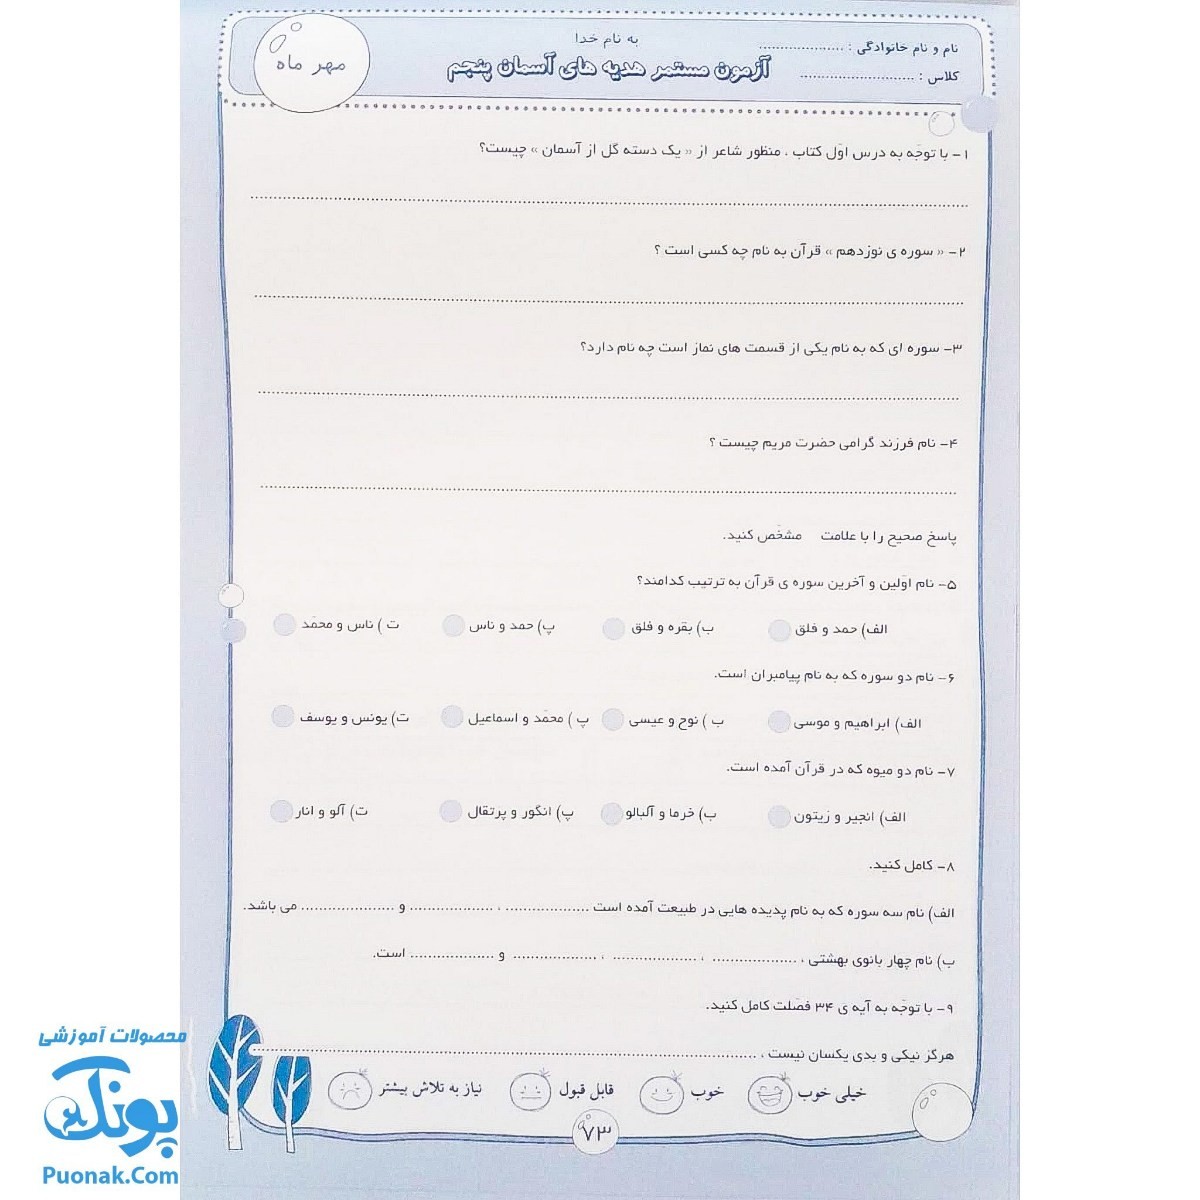 به نام خدا
نام و نام خانوادگی : ....................
آزمون مستمر هدیه های آسمان پنجم
مهر ماه
کلاس : ...........................
۱- با توجّه به درس اوّل کتاب ، منظور شاعر از « یک دسته گل از آسمان » چیست؟
۲- « سوره ی نوزدهم » قرآن به نام چه کسی است ؟
۳- سوره ای که به نام یکی از قسمت های نماز است چه نام دارد؟
۴- نام فرزند گرامی حضرت مریم چیست ؟
پاسخ صحیح را با علامت مشخّص کنید.
۵- نام اوّلین و آخرین سوره ی قرآن به ترتیب کدامند؟
الف) حمد و فلق ب) بقره و فلق پ) حمد و ناس ت ) ناس و محمّد
۶- نام دو سوره که به نام پیامبران است.
الف) ابراهیم و موسی ب ) نوح و عیسی پ ) محمّد و اسماعیل ت) یونس و یوسف
۷- نام دو میوه که در قرآن آمده است.
الف) انجیر و زیتون ب) خرما و آلبالو پ) انگور و پرتقال ت) آلو و انار
۸- کامل کنید.
الف) نام سه سوره که به نام پدیده هایی در طبیعت آمده است .................... ، .................... و ...................... می باشد.
ب) نام چهار بانوی بهشتی ، .................... ، .................... ، .................... و .................... است.
۹- با توجّه به آیه ی ۳۴ فصّلت کامل کنید.
هرگز نیکی و بدی یکسان نیست ، ..........................................................................................
خیلی خوب خوب قابل قبول نیاز به تلاش بیشتر
۷۳
محصولات آموزشی
پونک
Puonak.Com